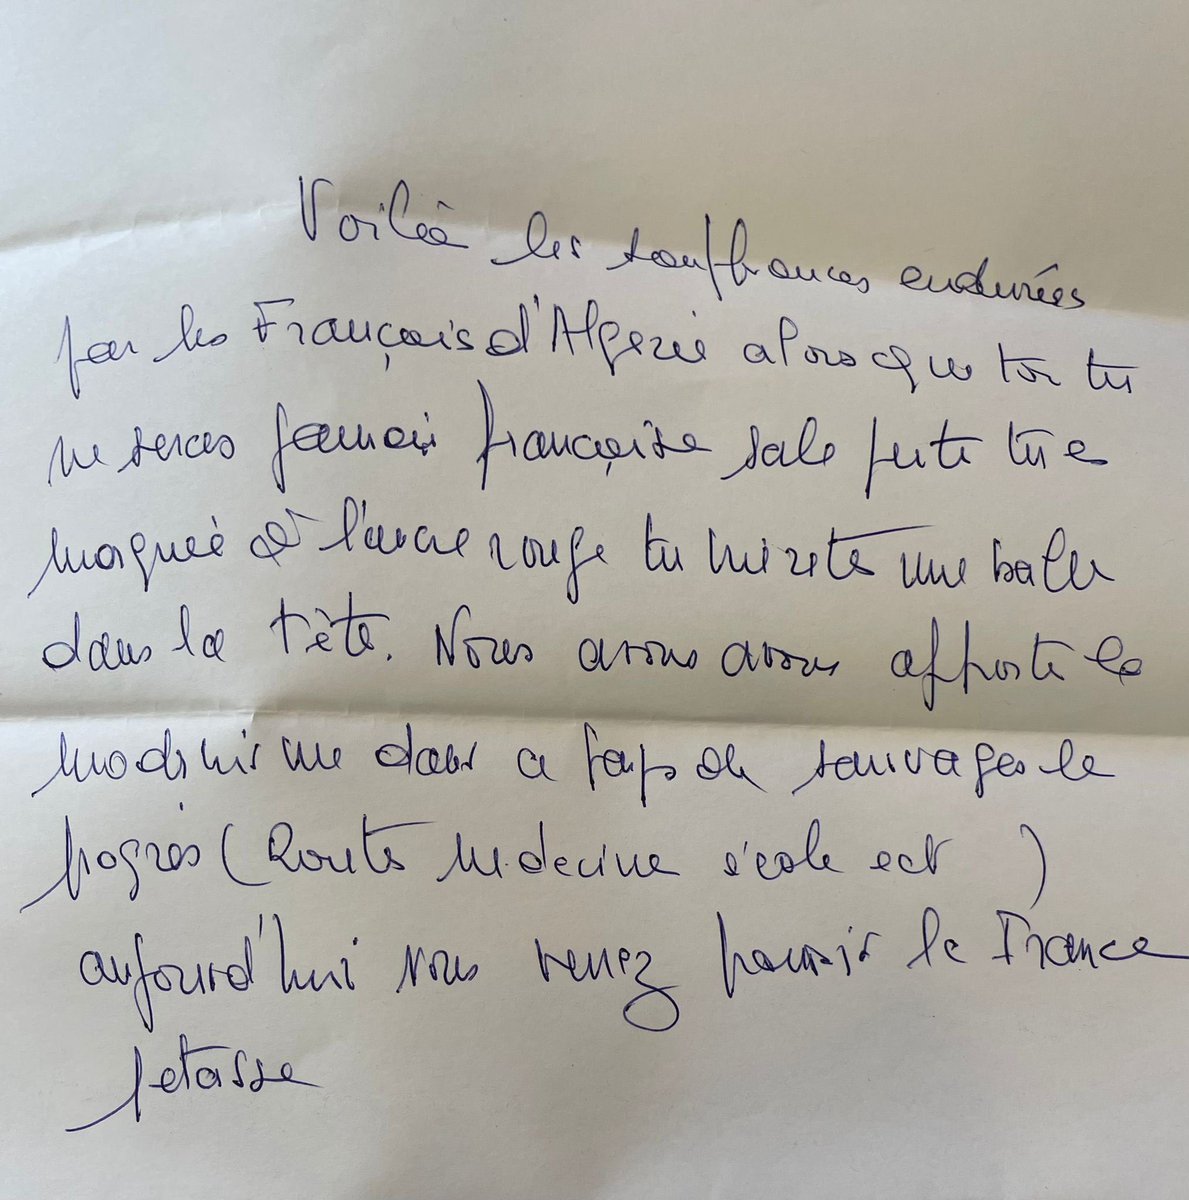 Voilà les souffrances endurées
par les Français d'Algerie alors que toi tu
ne seras jamais française sale pute tu es
marquée à l'encre rouge tu mérites une balle
dans la tête. Nous avons avons apporté le
modernisme dans ce pays de sauvages le
progrès (Route medecine école ect )
aujourd'hui vous venez pourrir la France
petasse